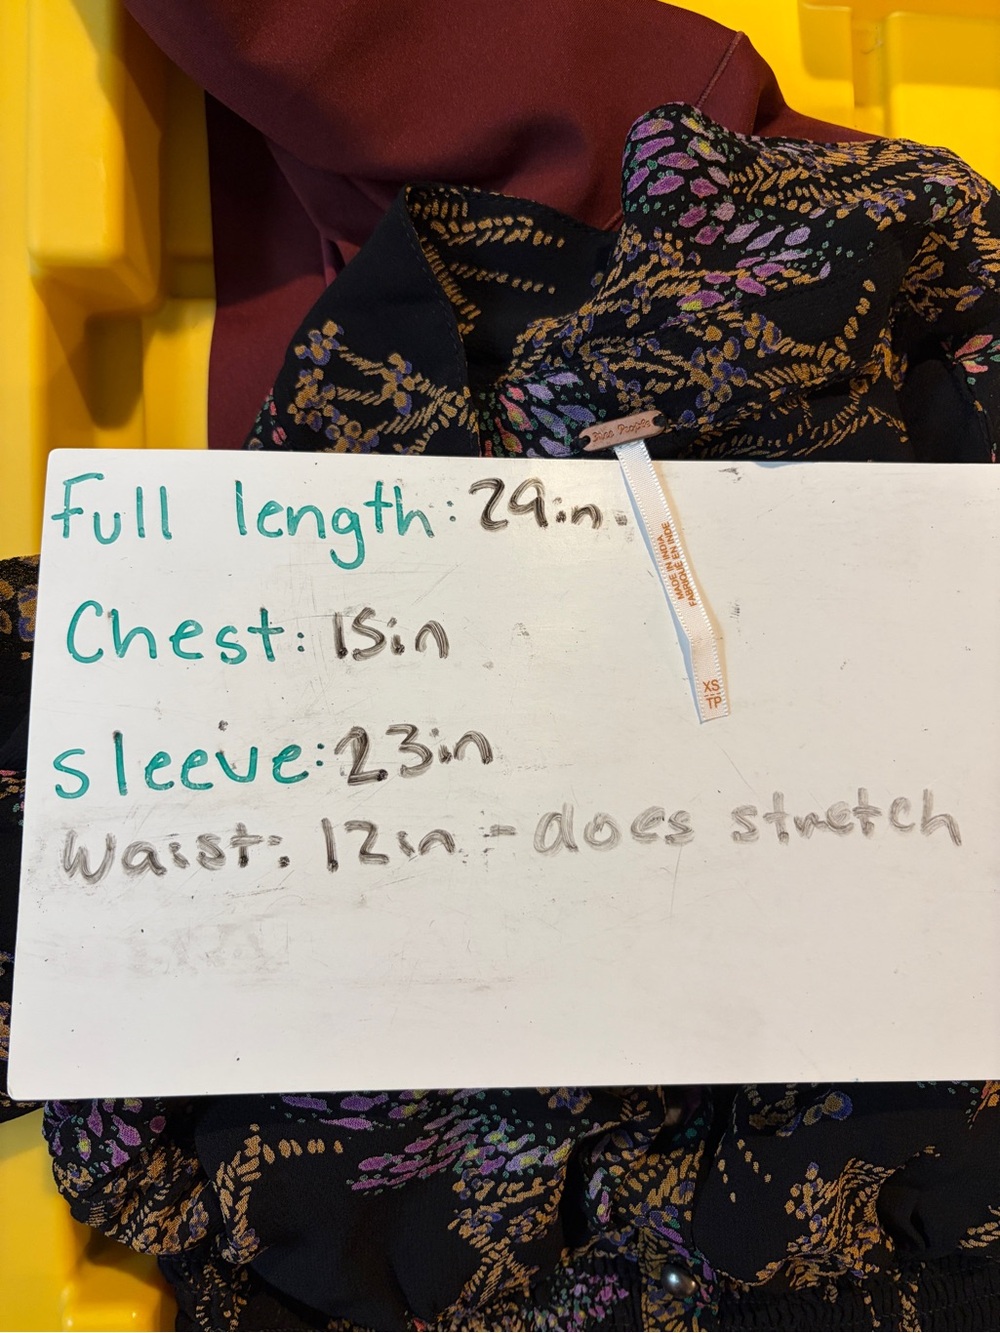 Free People
Full length: 29in.
MADE IN INDIA
FABRIQUE EN INDE
Chest: 15in
XS
TP
sleeve: 23in
Waist: 12in - does stretch